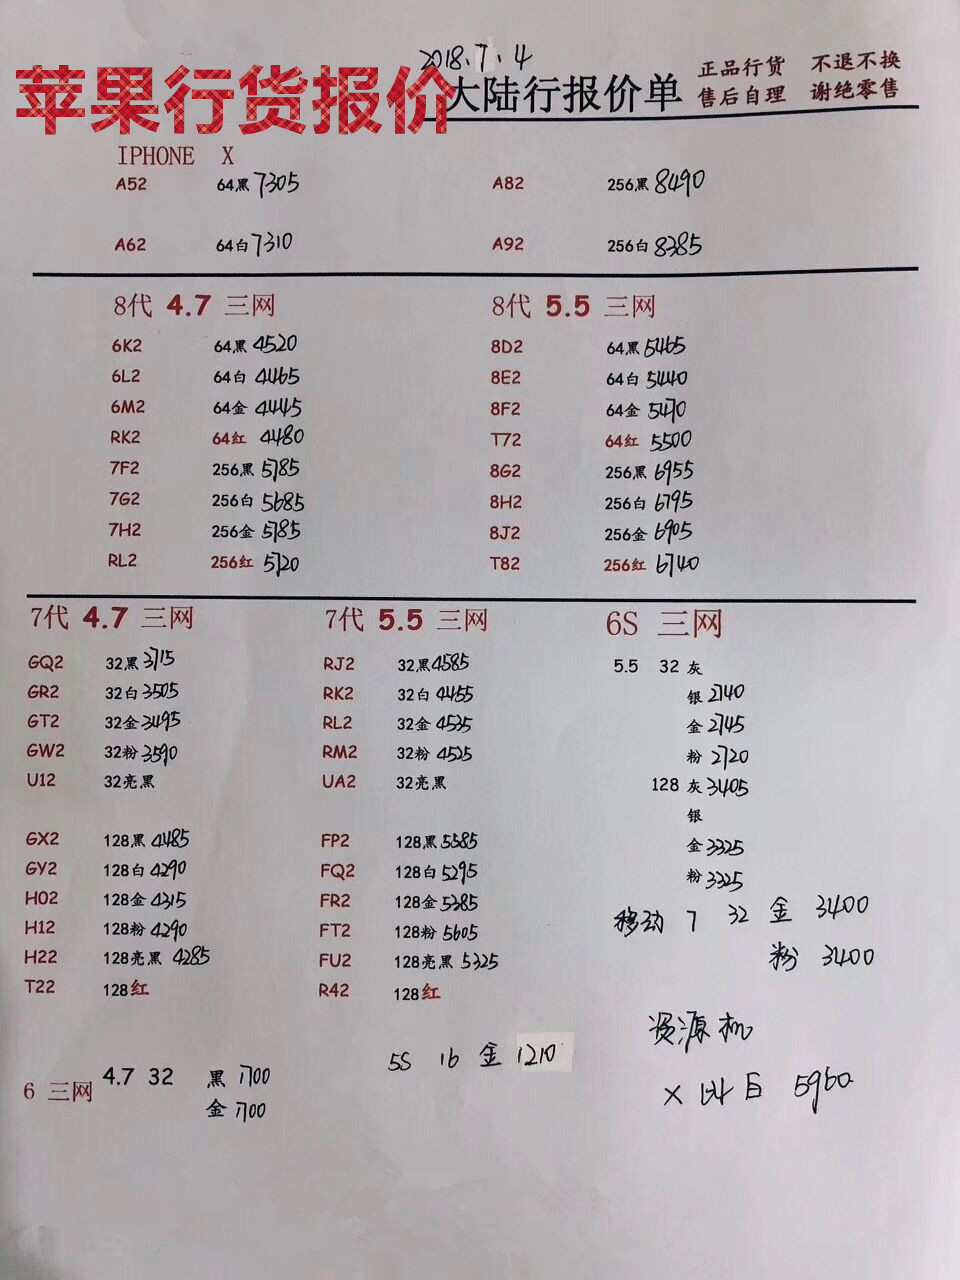 2018.7.4
苹果行货报价
大陆行报价单
正品行货 不退不换
售后自理 谢绝零售
IPHONE X
A52 64黑 7305 A82 256黑 8490
A62 64白 7310 A92 256白 8385
8代 4.7 三网 8代 5.5 三网
6K2 64黑 4520 8D2 64黑 5465
6L2 64白 4465 8E2 64白 5440
6M2 64金 4445 8F2 64金 5470
RK2 64红 4480 T72 64红 5500
7F2 256黑 5785 8G2 256黑 6955
7G2 256白 5685 8H2 256白 6795
7H2 256金 5785 8J2 256金 6905
RL2 256红 5720 T82 256红 6740
7代 4.7 三网 7代 5.5 三网 6S 三网
GQ2 32黑 3715 RJ2 32黑 4585 5.5 32 灰
GR2 32白 3505 RK2 32白 4455 银 2740
GT2 32金 3495 RL2 32金 4535 金 2745
GW2 32粉 3590 RM2 32粉 4525 粉 2720
U12 32亮黑 UA2 32亮黑 128 灰 3405
银
GX2 128黑 4485 FP2 128黑 5585 金 3325
GY2 128白 4290 FQ2 128白 5295 粉 3325
H02 128金 4315 FR2 128金 5385 移动 7 32 金 3400
H12 128粉 4290 FT2 128粉 5605
H22 128亮黑 4285 FU2 128亮黑 5325 粉 3400
T22 128红 R42 128红
资源机
5S 16 金 1210
6 三网 4.7 32 黑 1700 X 64 白 5960
金 1700